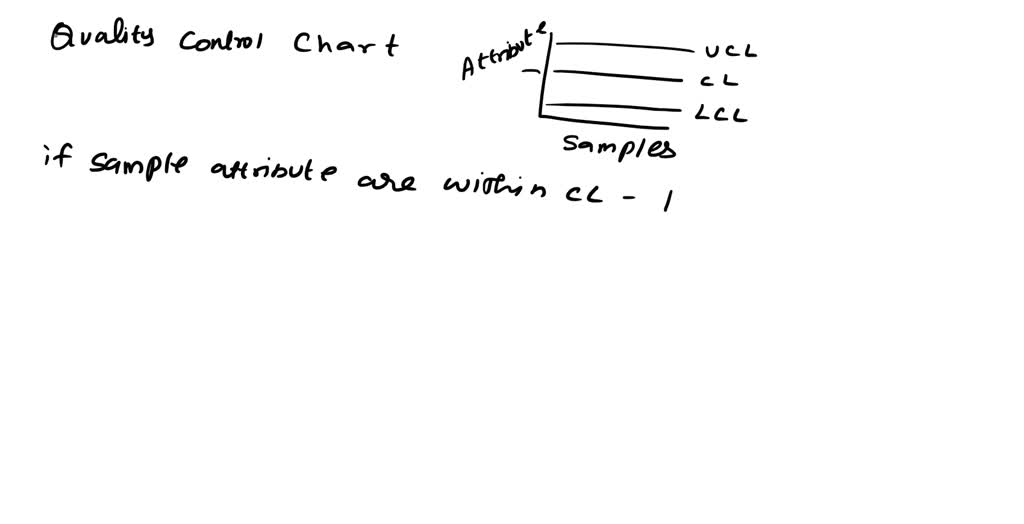 Quality Control Chart
Attribute
UCL
CL
LCL
Samples
if sample attribute are within CL - 1